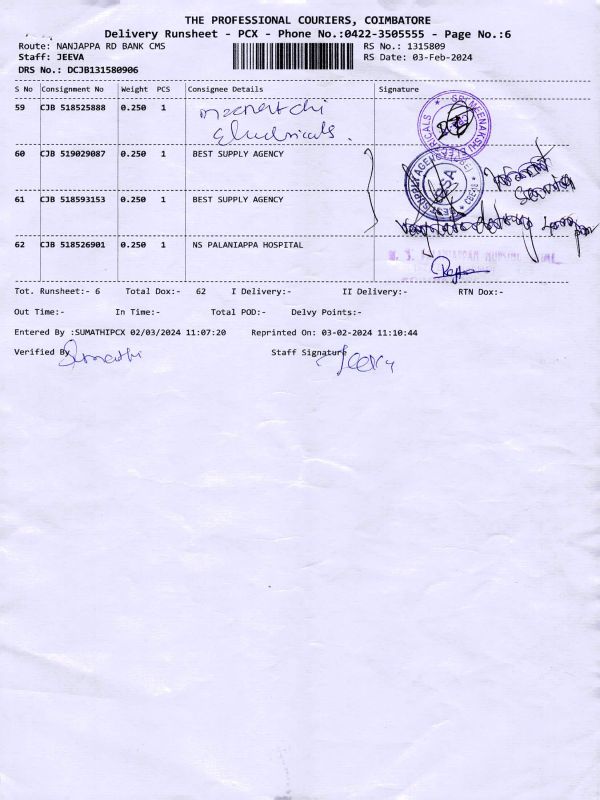 THE PROFESSIONAL COURIERS, COIMBATORE
Delivery Runsheet - PCX - Phone No.:0422-3505555 - Page No.:6
Route: NANJAPPA RD BANK CMS RS No.: 1315809
Staff: JEEVA RS Date: 03-Feb-2024
DRS No.: DCJB131580906
S No Consignment No Weight PCS Consignee Details Signature
59 CJB 518525888 0.250 1 meenatchi
Eludricals.
60 CJB 519029087 0.250 1 BEST SUPPLY AGENCY
61 CJB 518593153 0.250 1 BEST SUPPLY AGENCY
62 CJB 518526901 0.250 1 NS PALANIAPPA HOSPITAL
Tot. Runsheet:- 6 Total Dox:- 62 I Delivery:- II Delivery:- RTN Dox:-
Out Time:- In Time:- Total POD:- Delvy Points:-
Entered By :SUMATHIPCX 02/03/2024 11:07:20 Reprinted On: 03-02-2024 11:10:44
Verified By Sumathi Staff Signature Jeeva